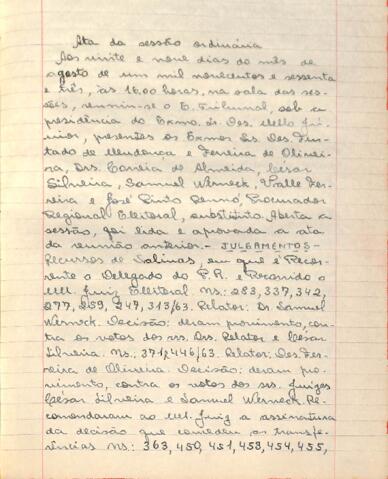 Ata da sessão ordinária
Aos vinte e nove dias do mês de
agosto de um mil novecentos e sessenta
e três, às 16,00 horas, na sala das ses-
sões, reuniu-se o E. Tribunal, sob a
presidência do Exmo. Sr. Des. Mello Jú-
nior, presentes os Exmos Srs. Des. Fur-
tado de Mendonça e Ferreira de Olivei-
ra, Drs. Correia de Almeida, César
Silveira, Samuel Werneck, Valle Fer-
reira e José Pinto Renno, Procurador
Regional Eleitoral, substituto. Aberta a
sessão, foi lida e aprovada a ata
da reunião anterior. - JULGAMENTOS -
Recursos de Salinas, em que é Recor-
rente o Delegado do P.R. e Recorrido o
MM. Juiz Eleitoral. Ns.: 283, 337, 342,
277, 259, 247, 313/63. Relator: Dr Samuel
Werneck. Decisão: deram provimento, con-
tra os votos dos srs. Drs. Relator e César
Silveira. Ns.: 371, 446/63. Relator: Des. Fer-
reira de Oliveira. Decisão: deram pro-
vimento, contra os votos dos srs. Juizes
César Silveira e Samuel Werneck. Re-
comendaram ao MM. Juiz a assinatura
da decisão que concedeu as transfe-
rências ns.: 363, 450, 451, 453, 454, 455,